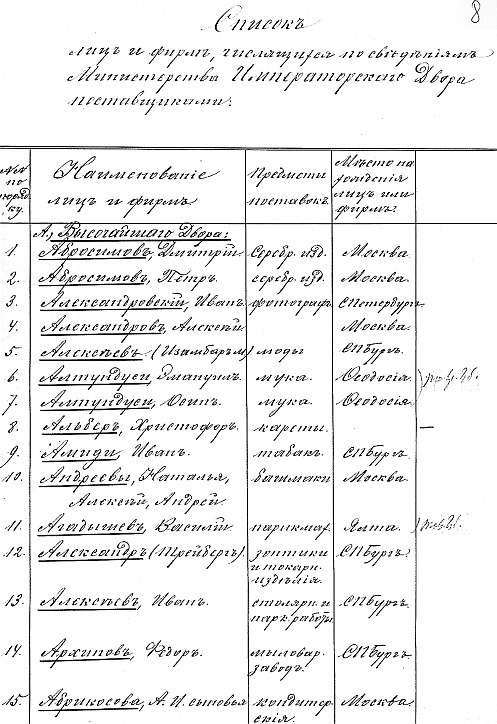 8
Списокъ
лицъ и фирмъ, числящихся по свѣдѣніямъ
Министерства Императорскаго Двора
поставщиками:
№№ по поряд- ку. Наименованіе лицъ и фирмъ Предметы поставокъ. Мѣсто на- хожденія лицъ или фирмъ.
А, Высочайшаго Двора:
1. Абросимовъ, Дмитрій серебр. изд. Москва
2. Абросимовъ, Петръ. серебр. изд. Москва.
3. Александровскій, Иванъ. фотографъ СПетербургъ
4. Александровъ, Алексѣй Москва.
5. Алексѣевъ (Изамбаръ) моды СПбургъ.
6. Алтундуси, Эмануилъ. мука. Ѳеодосія.
7. Алтундуси, Осипъ. мука. Ѳеодосія.
8. Альберъ, Христофоръ. кареты. —
9. Амиди, Иванъ. табакъ. СПбургъ.
10. Андреевы, Наталья, башмаки Москва.
Алексѣй, Андрей.
11. Агадышевъ, Василій. парикмах. Ялта.
12. Александръ (Трейбергъ). зонтики СПбургъ.
и токарн.
издѣлія.
13. Алексѣевъ, Иванъ. столярн. и СПбургъ.
парк. работы
14. Архиповъ, Ѳедоръ. мыловар. СПбургъ.
заводъ.
15. Абрикосова, А. И. сыновья кондитер- Москва.
скія.